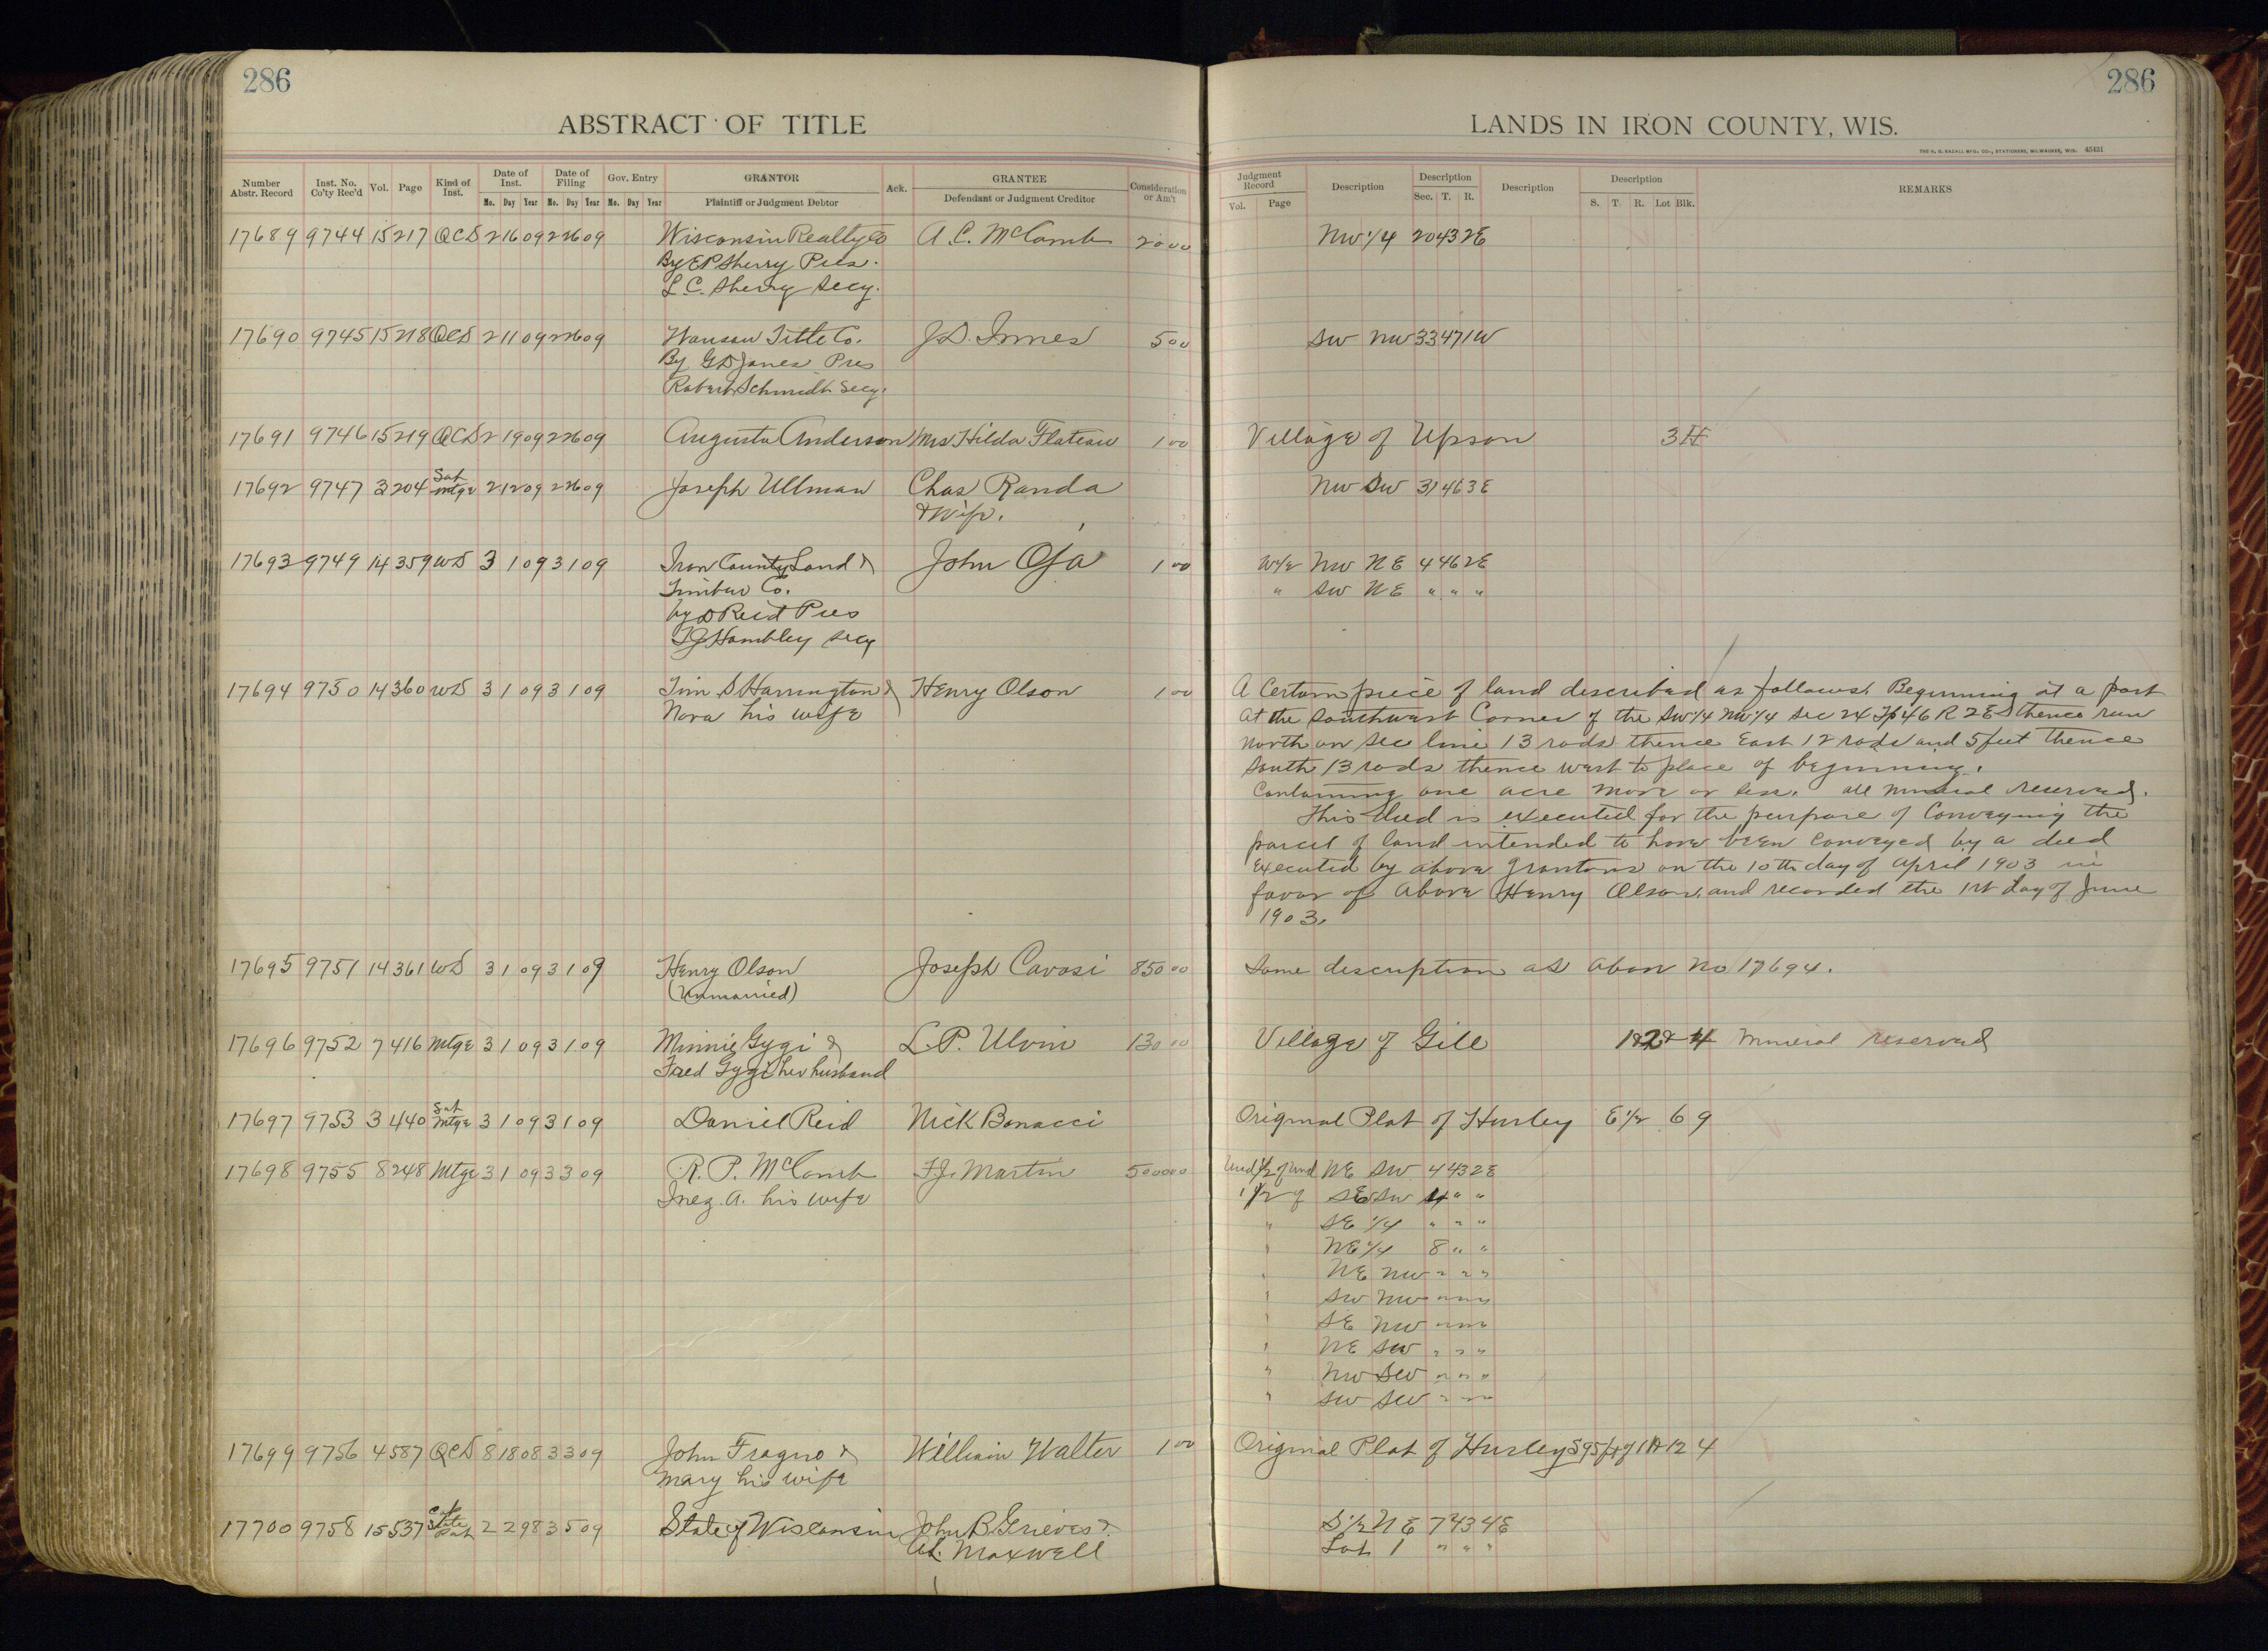 286
286
ABSTRACT OF TITLE
LANDS IN IRON COUNTY, WIS.
THE H. G. RAZALL MFG. CO., STATIONERS, MILWAUKEE, WIS. 45431
Number Abstr. Record Inst. No. Co'ty Rec'd Vol. Page Kind of Inst. Date of Inst. Mo. Day Year Date of Filing Mo. Day Year Gov. Entry Mo. Day Year GRANTOR Plaintiff or Judgment Debtor Ack. GRANTEE Defendant or Judgment Creditor Consideration or Am't
Judgment Record Vol. Page Description Description Sec. T. R. Description Description S. T. R. Lot Blk. REMARKS
17689 9744 15 217 QCD 2 16 09 2 26 09 Wisconsin Realty Co A. C. McComb 20 00 NW 1/4 20 43 2E
By E P Sherry Pres.
L. C. Sherry Secy.
17690 9745 15 218 QCD 2 11 09 2 26 09 Wausau Title Co. J. D. Innes 5 00 SW NW 33 47 1W
By G D Jones Pres
Robert Schmidt Secy.
17691 9746 15 219 QCD 2 19 09 2 26 09 Augusta Anderson Mrs Hilda Flateau 1 00 Village of Upson 3 H
17692 9747 3 204 Sat Mtge 2 12 09 2 26 09 Joseph Ullman Chas Randa NW SW 31 46 3E
& Wife.
17693 9749 14 359 WD 3 1 09 3 1 09 Iron County Land & John Oja 1 00 W1/2 NW NE 4 46 2E
Timber Co. " SW NE " " "
by D Reid Pres
T J Hambley Secy
17694 9750 14 360 WD 3 1 09 3 1 09 Tim S Harrington & Henry Olson 1 00
Nora his wife
A Certain piece of land described as follows. Beginning at a post
at the Southwest Corner of the SW1/4 NW1/4 Sec 24 Tp 46 R 2E thence run
North on Sec line 13 rods thence East 12 rods and 5 feet thence
South 13 rods thence west to place of beginning.
Containing one acre more or less. All mineral reserved.
This deed is executed for the purpose of Conveying the
parcel of land intended to have been conveyed by a deed
executed by above grantors on the 10th day of April 1903 in
favor of above Henry Olson. and recorded the 1st day of June
1903.
17695 9751 14 361 WD 3 1 09 3 1 09 Henry Olson Joseph Cavosi 850 00 Same description as above No 17694.
(Unmarried)
17696 9752 7 416 Mtge 3 1 09 3 1 09 Minnie Gygi & L. P. Ulvin 130 00 Village of Gile 1&2 4 Mineral reserved
Fred Gygi her husband
17697 9753 3 440 Sat Mtge 3 1 09 3 1 09 Daniel Reid Nick Bonacci Original Plat of Hurley E1/2 6 9
17698 9755 8 248 Mtge 3 1 09 3 3 09 R. P. McComb F. J. Martin 5000 00 Und 1/2 of Und NE SW 4 43 2E
Inez. A. his wife 1/2 of SE SW 4 " "
" SE 1/4 " " "
" NE 1/4 8 " "
" NE NW " " "
" SW NW " " "
" SE NW " " "
" NE SW " " "
" NW SW " " "
" SW SW " " "
17699 9756 4 587 QCD 8 18 08 3 3 09 John Fragno & William Walter 1 00 Original Plat of Hurley S 95 ft of 12 4
Mary his wife
17700 9758 15 537 State Pat 2 2 98 3 5 09 State of Wisconsin John B Grieves & S1/2 NE 7 43 4E
Maxwell Lot 1 " " "